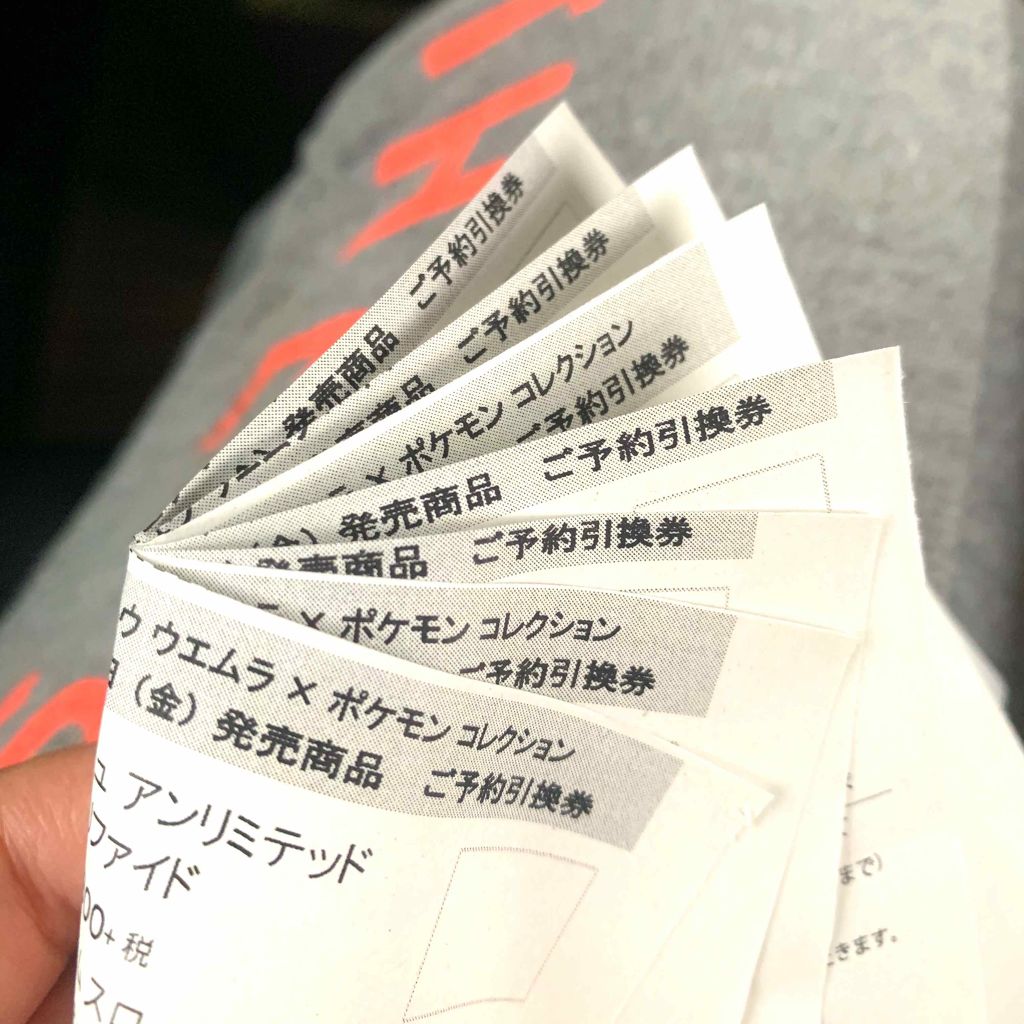 ご予約引換券
発売商品
ご予約引換券
商品
ポケモン コレクション
ご予約引換券
ご予約引換券
（金）発売商品
ご予約引換券
発売商品
× ポケモン コレクション
ご予約引換券
ウ ウエムラ × ポケモン コレクション
日（金）発売商品 ご予約引換券
ュ アンリミテッド
ファイド
00+税
まで)
きます。